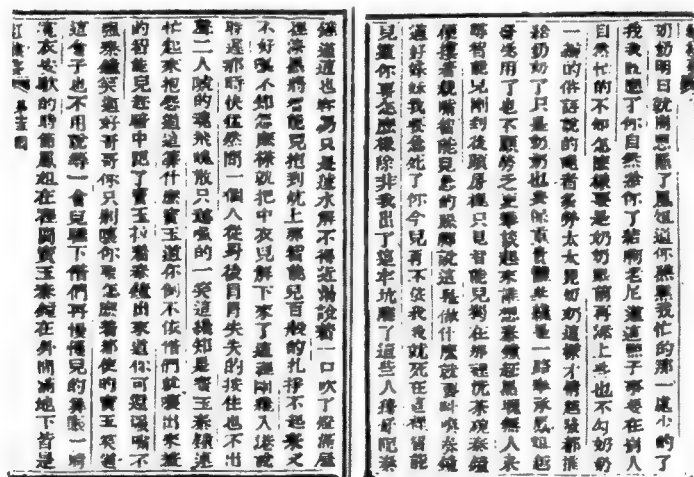 奶奶明日就開恩罷了鳳姐道你瞧瞧我忙的那一處少的了
我我既應了你自然給你了結啊老尼道這點子事要在别人
自然忙的不知怎麽樣要是奶奶跟前再添上些也不勾奶奶
一辦的俗語說的能者多勞太太見奶奶這樣才情越發都推
給奶奶了只是奶奶也要保重貴體些纔是一路奉承鳳姐越
發受用了也不顧勞乏更攀談起來誰想秦鐘趁黑晚無人來
尋智能兒剛到後頭房裡只見智能兒獨在那裡洗茶碗秦鐘
便摟着親嘴智能兒急的跺脚說這是做什麽就要叫喚秦鐘
道好妹妹我要急死了你今兒再不依我我就死在這裡智能
兒道你要怎麽樣除非我出了這牢坑離了這些人纔好呢秦
鐘道這也容易只是遠水解不得近渴說着一口吹了燈滿屋
裡漆黑將智能兒抱到炕上那智能兒百般的扎掙不起來又
不好嚷不知怎麽樣就把中衣兒解下來了這裡剛纔入港說
時遲那時快猛然間一個人從身後冒冒失失的按住也不出
聲二人唬的魂飛魄散只聽嗤的一笑這纔知是寶玉秦鐘連
忙起來抱怨道這算什麽寶玉道你倒不依偺們就嚷出來羞
的智能兒趁暗中跑了寶玉拉着秦鐘出來道你可還强嘴不
强秦鐘笑道好哥哥你只别嚷你要怎麽着都使的寶玉笑道
這會子也不用說等一會兒睡下偺們再慢慢兒的算賬一時
寬衣安歇的時節鳳姐在裡間寶玉秦鐘在外間滿地下皆是
紅樓夢 第十五囘